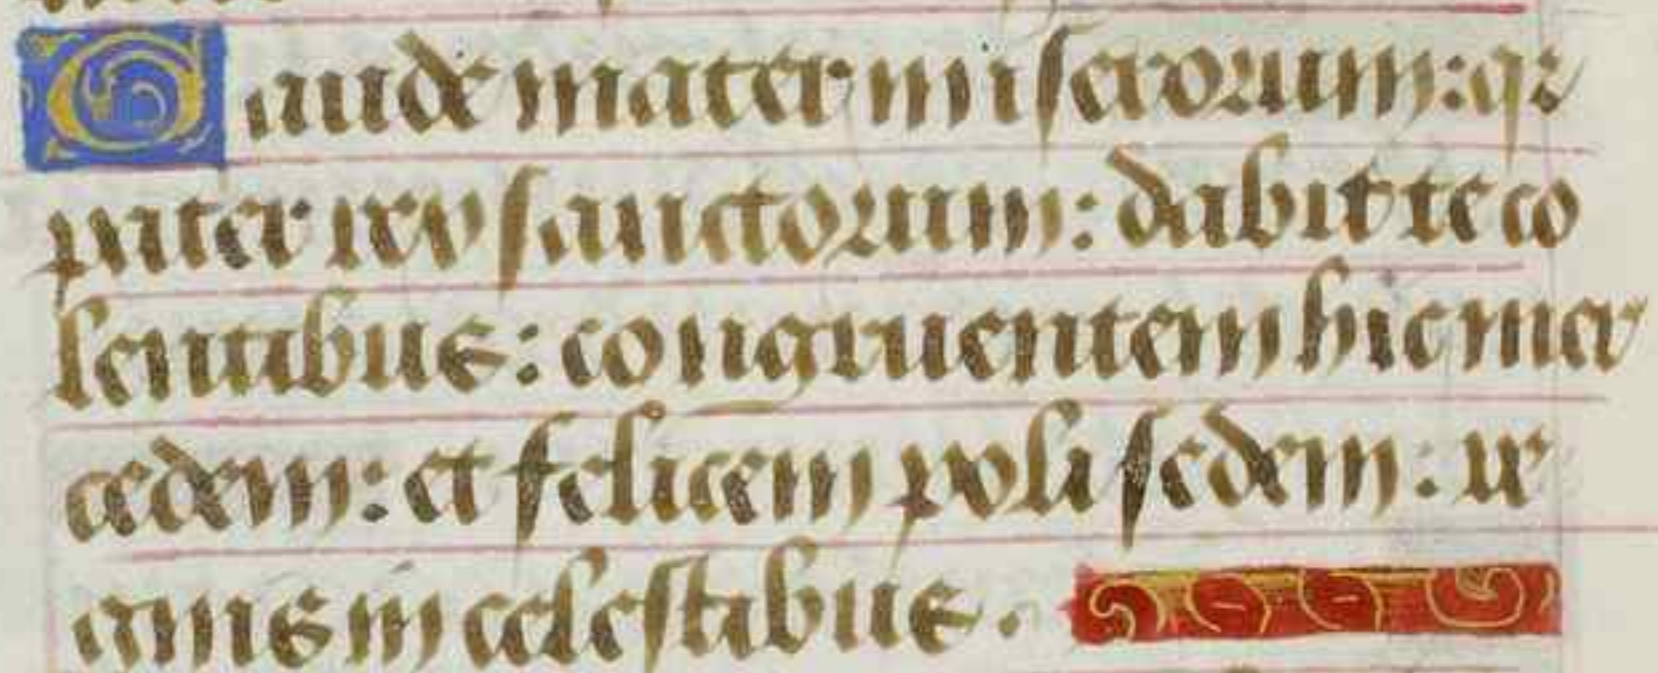 Gaude mater miserorum: qꝛ
pater rex sanctorum: dabit te co
lentibus: congruentem hic mer
cedem: et felicem poli sedem: re
gnis in celestibus.